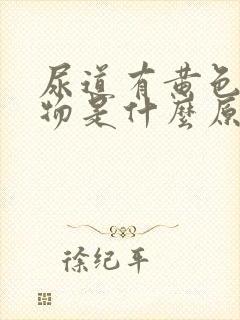 尿道有黄色
物是什麼原
徐纪平